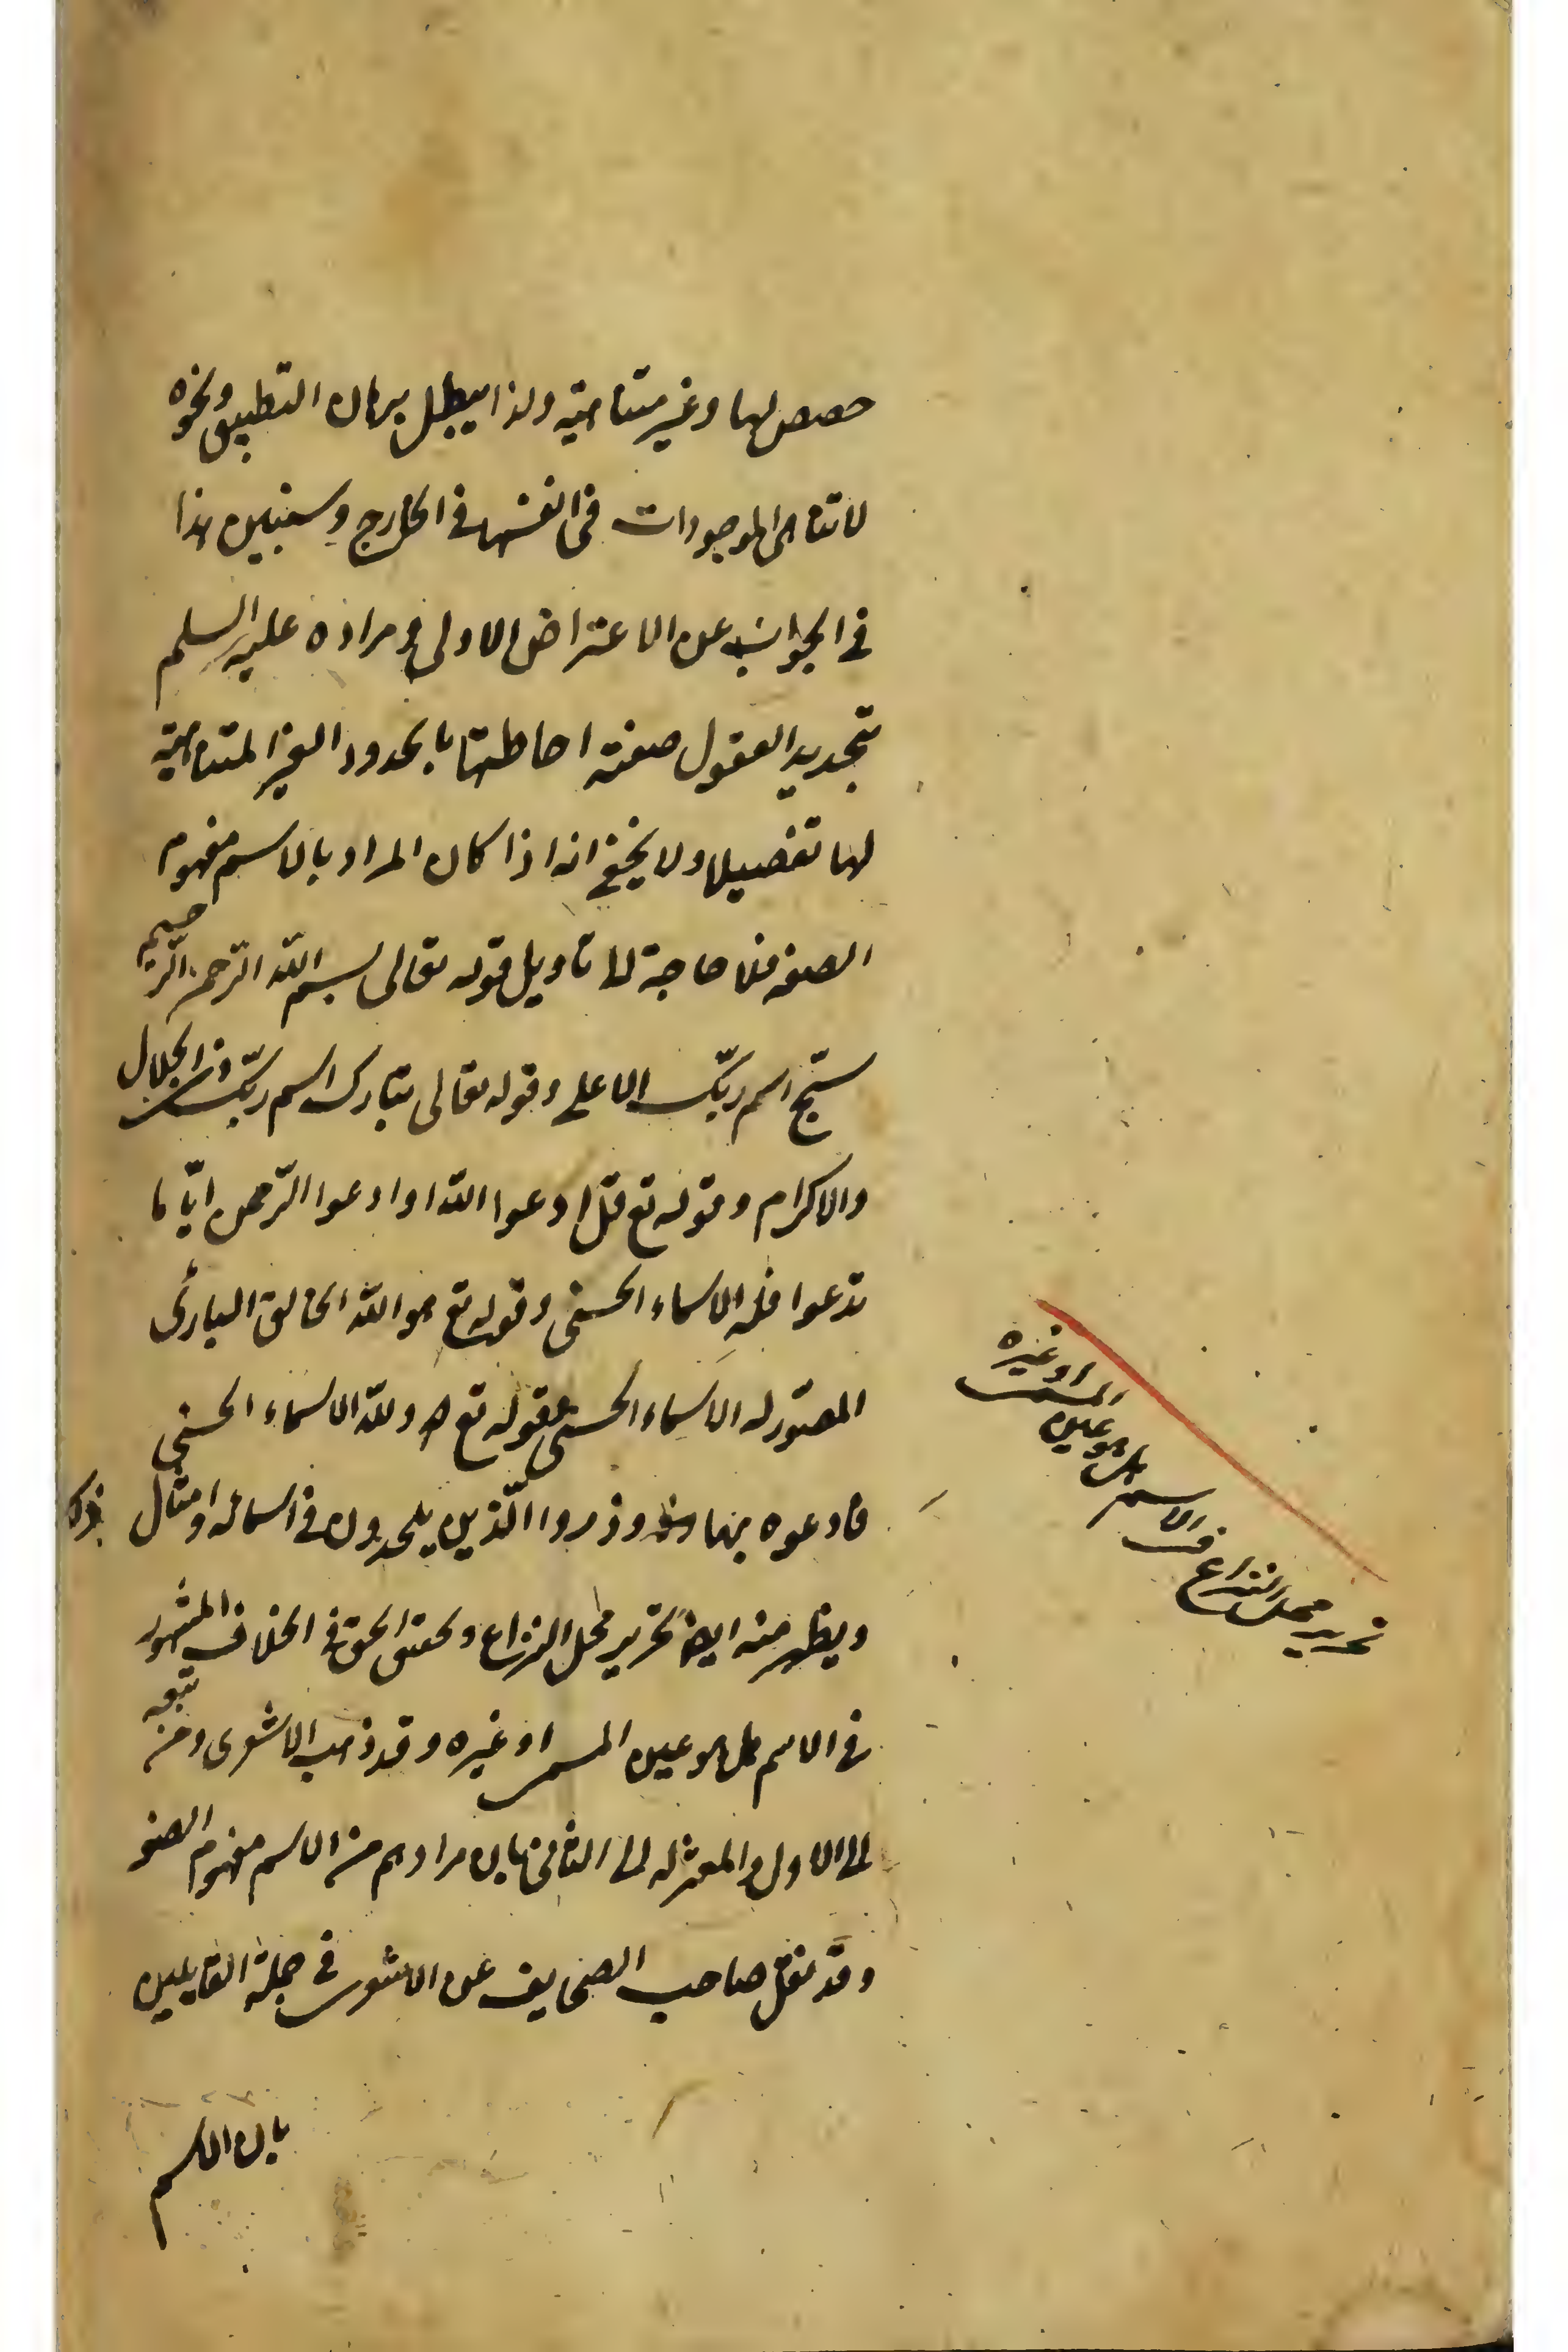 حصص لها وغير متناهية ولذا يبطل برهان التطبيق ونحوه
لا تناهى الموجودات فى انفسها فى الخارج وسنبين هذا
فى الجواب عن الاعتراض الاولى ومراده عليه السلم
بتحديد العقول صفته احاطتها بالحدود الغير المتناهية
لها تفصيلا ولا يخفى انه اذا كان المراد بالاسم مفهوم
الصفة فلا حاجة الى تاويل قوله تعالى بسم الله الرحمن الرحيم
سبّح اسم ربّك الاعلى وقوله تعالى تبارك اسم ربّك ذى الجلال
والاكرام وقوله تع قل ادعوا الله او ادعوا الرّحمن ايّا ما
تدعوا فله الاسماء الحسنى وقوله تع هو الله الخالق البارئ
المصوّر له الاسماء الحسنى وقوله تع ولله الاسماء الحسنى
فادعوه بها وذروا الّذين يلحدون فى اسمائه وامثال ذلك
ويظهر منه ايضا تحرير محل النزاع وتحقق الحق فى الخلاف المشهور
فى الاسم هل هو عين المسمى او غيره وقد ذهب الاشعرى ومن تبعه
الى الاول والمعتزله الى الثانى بان مرادهم من الاسم مفهوم الصفة
وقد نقل صاحب الصحايف عن الاشعرى فى جملة القايلين
بان الاسم
تحرير محل النزاع فى الاسم هل هو عين المسمى او غيره